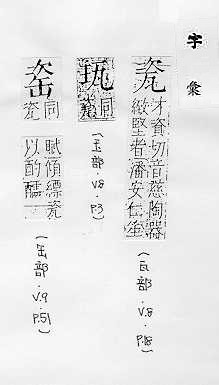 字彙
瓷
才資切音慈陶器
緻堅者潘安仁笙
(瓦部.V.8.P.18)
同
(玉部.V8.P3)
同
瓷
賦傾縹瓷
以酌醽
(缶部.V.9P.51)